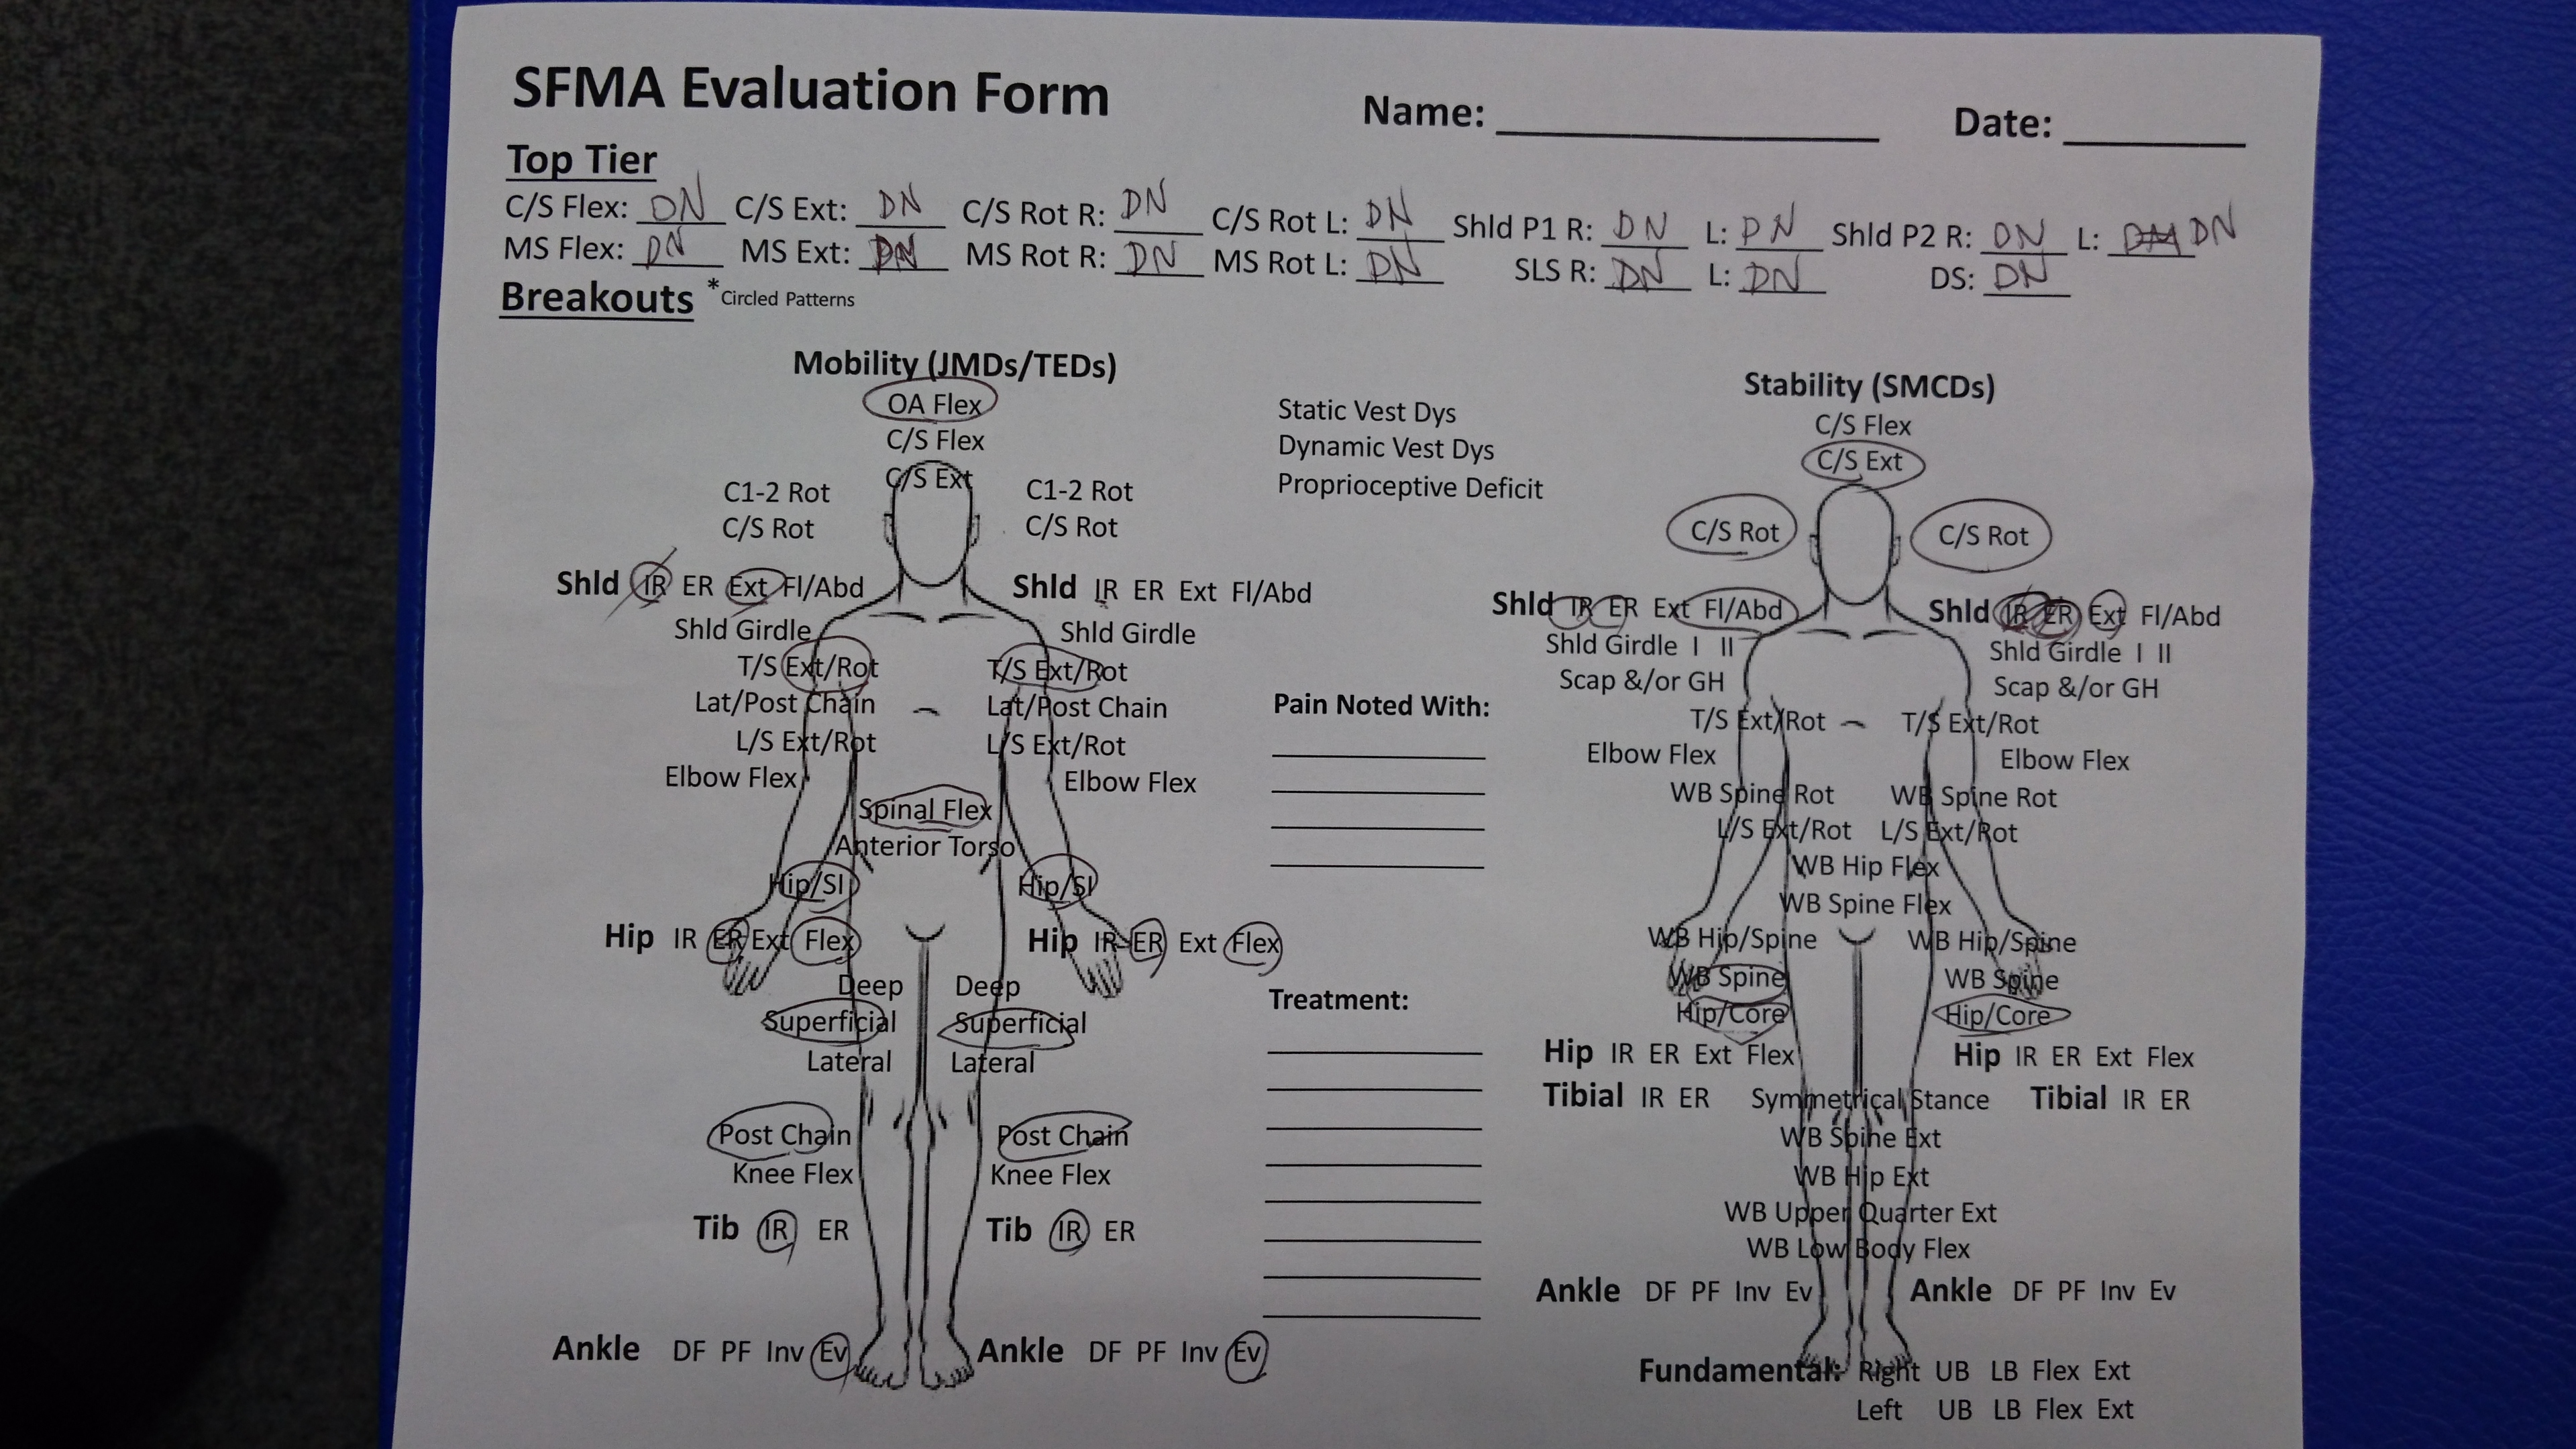 SFMA Evaluation Form
Name: Date:
Top Tier
C/S Flex: DN C/S Ext: DN C/S Rot R: DN C/S Rot L: DN Shld P1 R: DN L: DN Shld P2 R: DN L: DN
MS Flex: DN MS Ext: DN MS Rot R: DN MS Rot L: DN SLS R: DN L: DN DS: DN
Breakouts *Circled Patterns
Mobility (JMDs/TEDs)
OA Flex
C/S Flex
C/S Ext
C1-2 Rot C1-2 Rot
C/S Rot C/S Rot
Shld IR ER Ext Fl/Abd Shld IR ER Ext Fl/Abd
Shld Girdle Shld Girdle
T/S Ext/Rot T/S Ext/Rot
Lat/Post Chain Lat/Post Chain
L/S Ext/Rot L/S Ext/Rot
Elbow Flex Elbow Flex
Spinal Flex
Anterior Torso
Hip/SI Hip/SI
Hip IR ER Ext Flex Hip IR ER Ext Flex
Deep Deep
Superficial Superficial
Lateral Lateral
Post Chain Post Chain
Knee Flex Knee Flex
Tib IR ER Tib IR ER
Ankle DF PF Inv Ev Ankle DF PF Inv Ev
Static Vest Dys
Dynamic Vest Dys
Proprioceptive Deficit
Pain Noted With:
Treatment:
Stability (SMCDs)
C/S Flex
C/S Ext
C/S Rot C/S Rot
Shld IR ER Ext Fl/Abd Shld IR ER Ext Fl/Abd
Shld Girdle I II Shld Girdle I II
Scap &/or GH Scap &/or GH
T/S Ext/Rot T/S Ext/Rot
Elbow Flex Elbow Flex
WB Spine Rot WB Spine Rot
L/S Ext/Rot L/S Ext/Rot
WB Hip Flex
WB Spine Flex
WB Hip/Spine WB Hip/Spine
WB Spine WB Spine
Hip/Core Hip/Core
Hip IR ER Ext Flex Hip IR ER Ext Flex
Tibial IR ER Symmetrical Stance Tibial IR ER
WB Spine Ext
WB Hip Ext
WB Upper Quarter Ext
WB Low Body Flex
Ankle DF PF Inv Ev Ankle DF PF Inv Ev
Fundamental: Right UB LB Flex Ext
Left UB LB Flex Ext